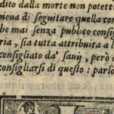 dito dalla morte non potett
mena di seguitare quella con
be mai senza publico consig
ria, sia tutta attribuita a l
consigliato da' savi, però
consigliarsi di questo : parlo